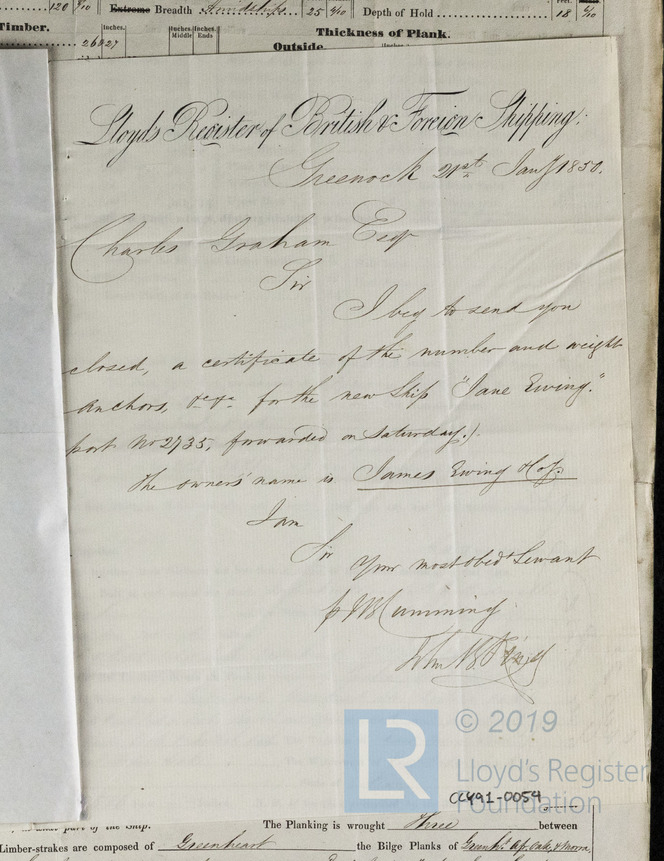 120 8/10 Extreme Breadth 25 4/10 Depth of Hold 18 6/10
Timber. Inches. Inches Middle Inches Ends Thickness of Plank.
26 27 Outside. Inches
Lloyd's Register of British & Foreign Shipping.
Greenock 21st Jany 1850.
Charles Graham Esqr
Sir
I beg to send you
closed, a certificate of the number and weight
anchors, &c &c for the new Ship "Jane Ewing."
port No 2735, forwarded on Saturday.).
The owners' name is James Ewing
I am
Sir
Your most obedt Servant
p J B Cumming
John
LR
© 2019
Lloyd's Register
Foundation
CC491-0054
part of the Ship. The Planking is wrought Three between
Limber-strakes are composed of Greenheart the Bilge Planks of Oak &